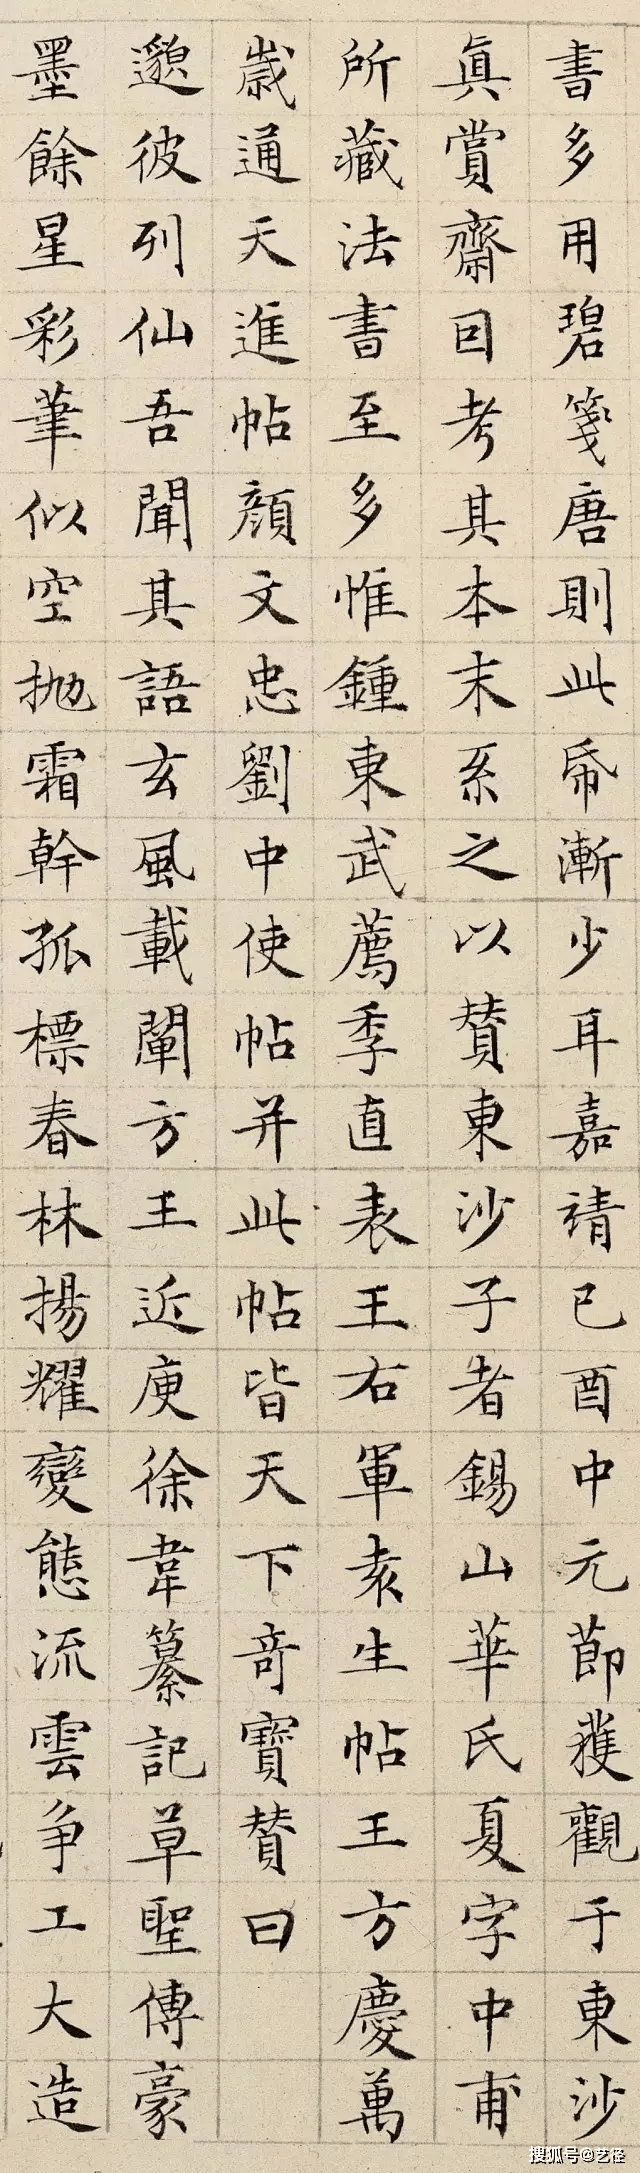 書多用碧箋唐則此帋漸少耳嘉靖己酉中元節獲觀于東沙
眞賞齋因考其本末系之以賛東沙子者錫山華氏夏字中甫
所藏法書至多惟鍾東武薦季直表王右軍袁生帖王方慶萬
歲通天進帖顔文忠劉中使帖并此帖皆天下竒寶賛曰
邈彼列仙吾聞其語玄風載闡方王近庾徐韋纂記草聖傳豪
墨餘星彩筆似空拋霜幹孤標春林揚耀變態流雲争工大造
搜狐号@艺径